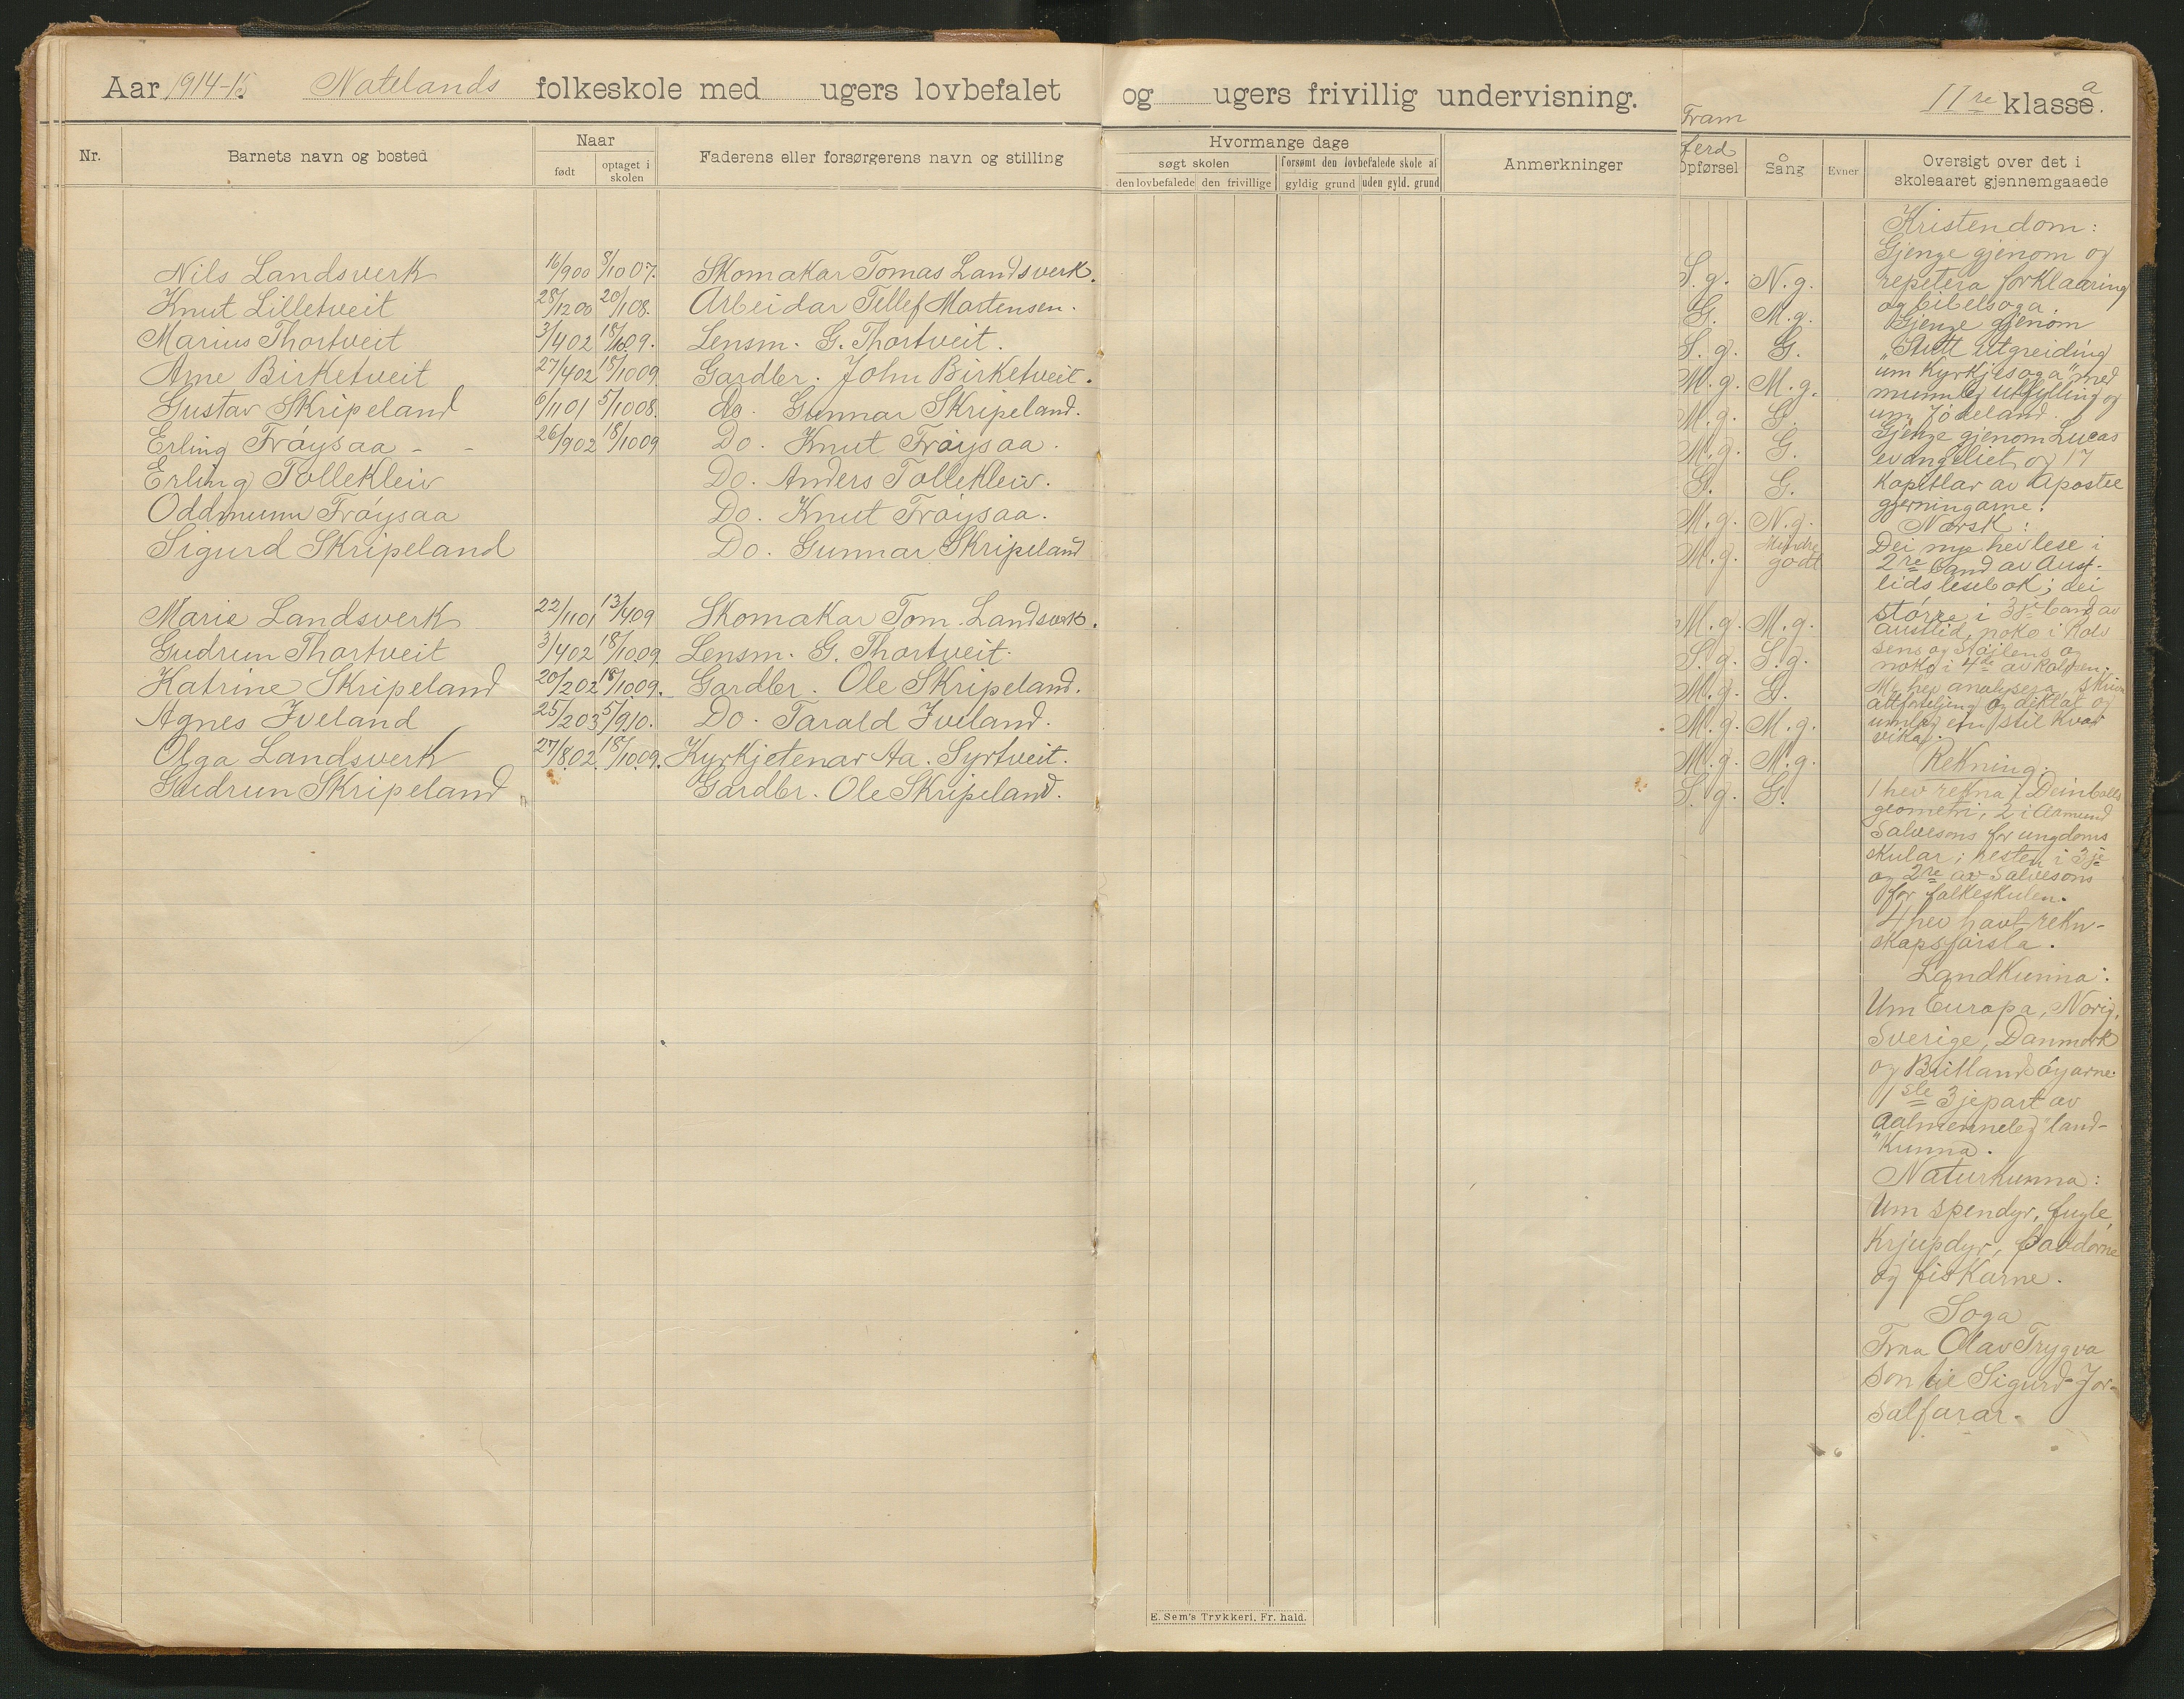 Aar 1914-15. Natelands folkeskole med ugers lovbefalet og ugers frivillig undervisning. IIre klasse. a
Nr.
Barnets navn og bosted
Naar
født
optaget i skolen
Faderens eller forsørgerens navn og stilling
Hvormange dage
søgt skolen
forsømt den lovbefalede skole af
den lovbefalede
den frivillige
gyldig grund
uden gyld. grund
Anmerkninger
Fram
ferd
Opførsel
Sång
Evner
Oversigt over det i
skoleaaret gjennemgaaede
Nils Landsverk 16/900 8/1007. Skomakar Tomas Landsverk. S.g. N.g.
Knut Lilletveit 28/1200 20/108. Arbeidar Tellef Mortensen. G. M.g.
Marius Thortveit 3/402 18/1009. Lensm. G. Thortveit. S.g. G.
Arne Birketveit 27/402 18/1009 Gardbr. John Birketveit. M.g. M.g.
Gustav Skripeland 6/1101 5/1008. do. Gunnar Skripeland. M.g. G.
Erling Frøysaa - - 26/902 18/1009 Do. Knut Frøysaa. M.g. G.
Erling Tollekleiv Do. Anders Tollekleiv. G. G.
Oddmunn Frøysaa Do. Knut Frøysaa. M.g. N.g.
Sigurd Skripeland Do. Gunnar Skripeland M.g. Mindre godt
Marie Landsverk 22/1101 13/409 Skomakar Tom. Landsverk. M.g. M.g.
Gudrun Thortveit 3/402 18/1009. Lensm. G. Thortveit. S.g. S.g.
Katrine Skripeland 20/202 18/1009. Gardbr. Ole Skripeland. M.g. G.
Agnes Iveland 25/203 5/910. Do. Tarald Iveland. M.g. M.g.
Olga Landsverk 27/802 18/1009. Kyrkjetenar Aa. Syrtveit. M.g. M.g.
Gudrun Skripeland Gardbr. Ole Skripeland. S.g. G.
Kristendom:
Gjenge gjenom og
repetera forklaaring
og bibelsoga.
Gjenge gjenom
"Stutt utgreiding
um kyrkjesoga" med
munnleg utfylling og
um Jødeland.
Gjenge gjenom Lucas
evangeliet og 17
kapitlar av Apostel
gjerningarne.
Norsk:
Dei nye hev lese i
2re band av Aust-
lids lesebok; dei
større i 3je band av
Austlid, noko i Rolv
sens og Støylens og
noko i 4de av Rolfsen.
Me hev analysera, skriv
attforteljing og diktat og
umlag ein stil kvar
vika.
Rekning.
1 hev rekna i Deinbolls
geometri, 2 i Aamund
Salvesons for ungdoms
skular; resten i 3je
og 2re av Salvesons
for folkeskulen.
4 hev havt rekn-
skapsførsla.
Landkunna:
Um Europa, Norig,
Sverige, Danmork
og Britlandsøyarne.
1ste 3jepart av
Aalmenneleg land-
"kunna.
Naturkunna:
Um spendyr, fugle,
krjupdyr, paddorne
og fiskarne.
Soga
Fraa Olav Trygva
son til Sigurd Jor-
salfarar.
E. Sem's Trykkeri, Fr. hald.